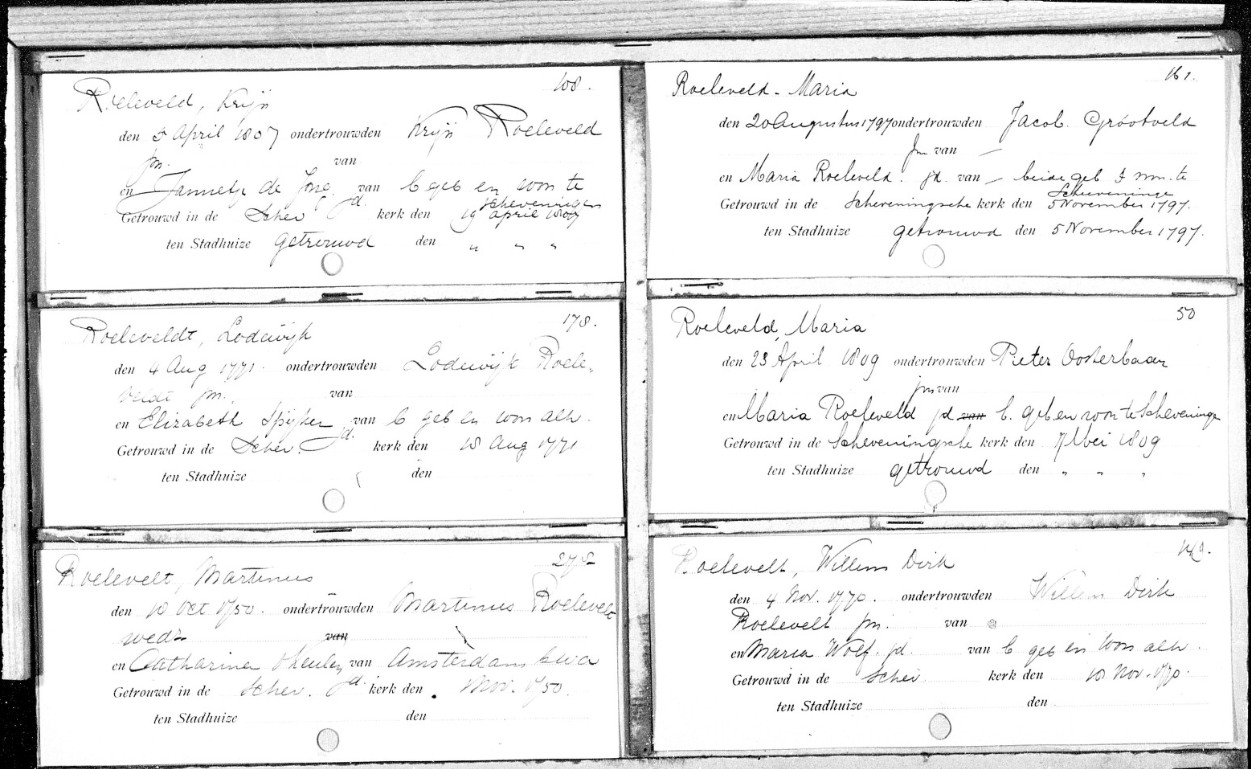 Roeleveld, Krijn 108.
den 5 April 1807 ondertrouwden Krijn Roeleveld
jm. van
en Jannetje de Jong jd. van b geb en won te
Scheveningen
Getrouwd in de Schev kerk den 19 April 1807
ten Stadhuize getrouwd den " " "
Roeleveldt, Lodewijk 178.
den 4 Aug 1771 ondertrouwden Lodewijk Roele-
veldt jm. van
en Elizabeth Spijker jd. van b geb en won alh.
Getrouwd in de Schev. kerk den 18 Aug 1771
ten Stadhuize den
Roelevelt, Martinus 278
den 10 Oct 1750. ondertrouwden Martinus Roelevelt
wedr van
en Catharina jd. van Amsterdam
Getrouwd in de Schev. kerk den . Nov. 1750.
ten Stadhuize den
Roeleveld - Maria 161.
den 20 Augustus 1797 ondertrouwden Jacob Grootveld
Jm van —
en Maria Roeleveld. jd. van — beide geb & won. te
Scheveninge
Getrouwd in de Scheveningsche kerk den 5 November 1797.
ten Stadhuize getrouwd den 5 November 1797.
Roeleveld, Maria 50
den 23 April 1809 ondertrouwden Pieter Oosterbaan
jm van
en Maria Roeleveld jd van b. geb en won te Scheveninge
Getrouwd in de Scheveningsche kerk den 7 Mei 1809
ten Stadhuize getrouwd den " " "
Roelevelt, Willem Dirk
den 4 Nov. 1770. ondertrouwden Willem Dirk
Roelevelt jm. van
en Maria Wolf. jd. van b geb en won alh.
Getrouwd in de Schev kerk den 18 Nov. 1770.
ten Stadhuize den